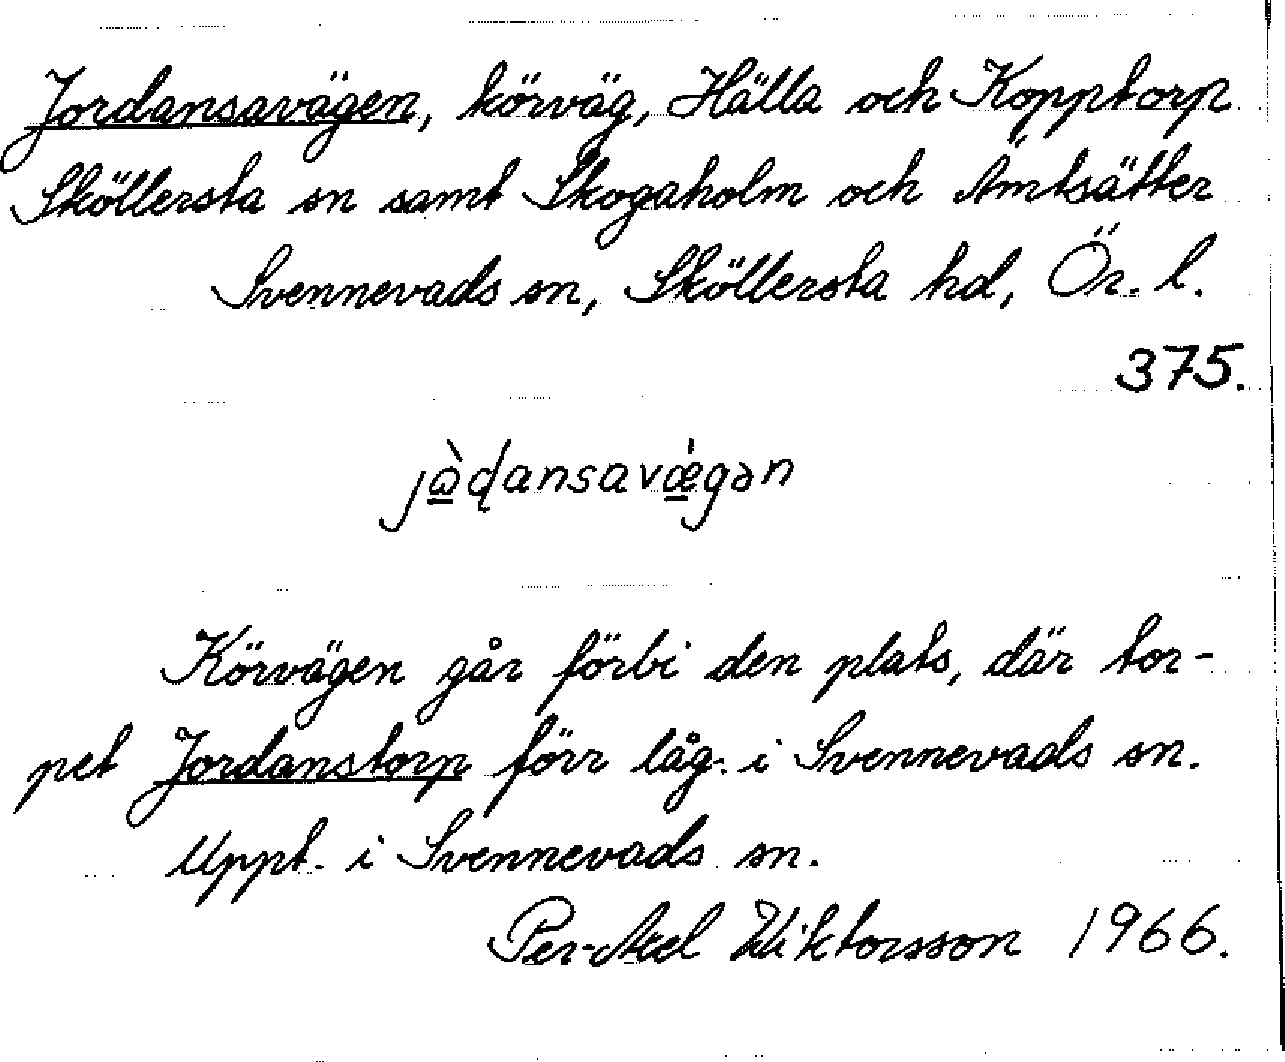 Jordansavägen, körväg, Hälla och Kopptorp
Sköllersta sn samt Skogaholm och Åmtsätter
Svennevads sn, Sköllersta hd, Ör. l.
375.
jὼɖansavæ̀gən
Körvägen går förbi den plats, där tor-
pet Jordanstorp förr låg. i Svennevads sn.
Uppt. i Svennevads sn.
Per-Axel Wiktorsson 1966.